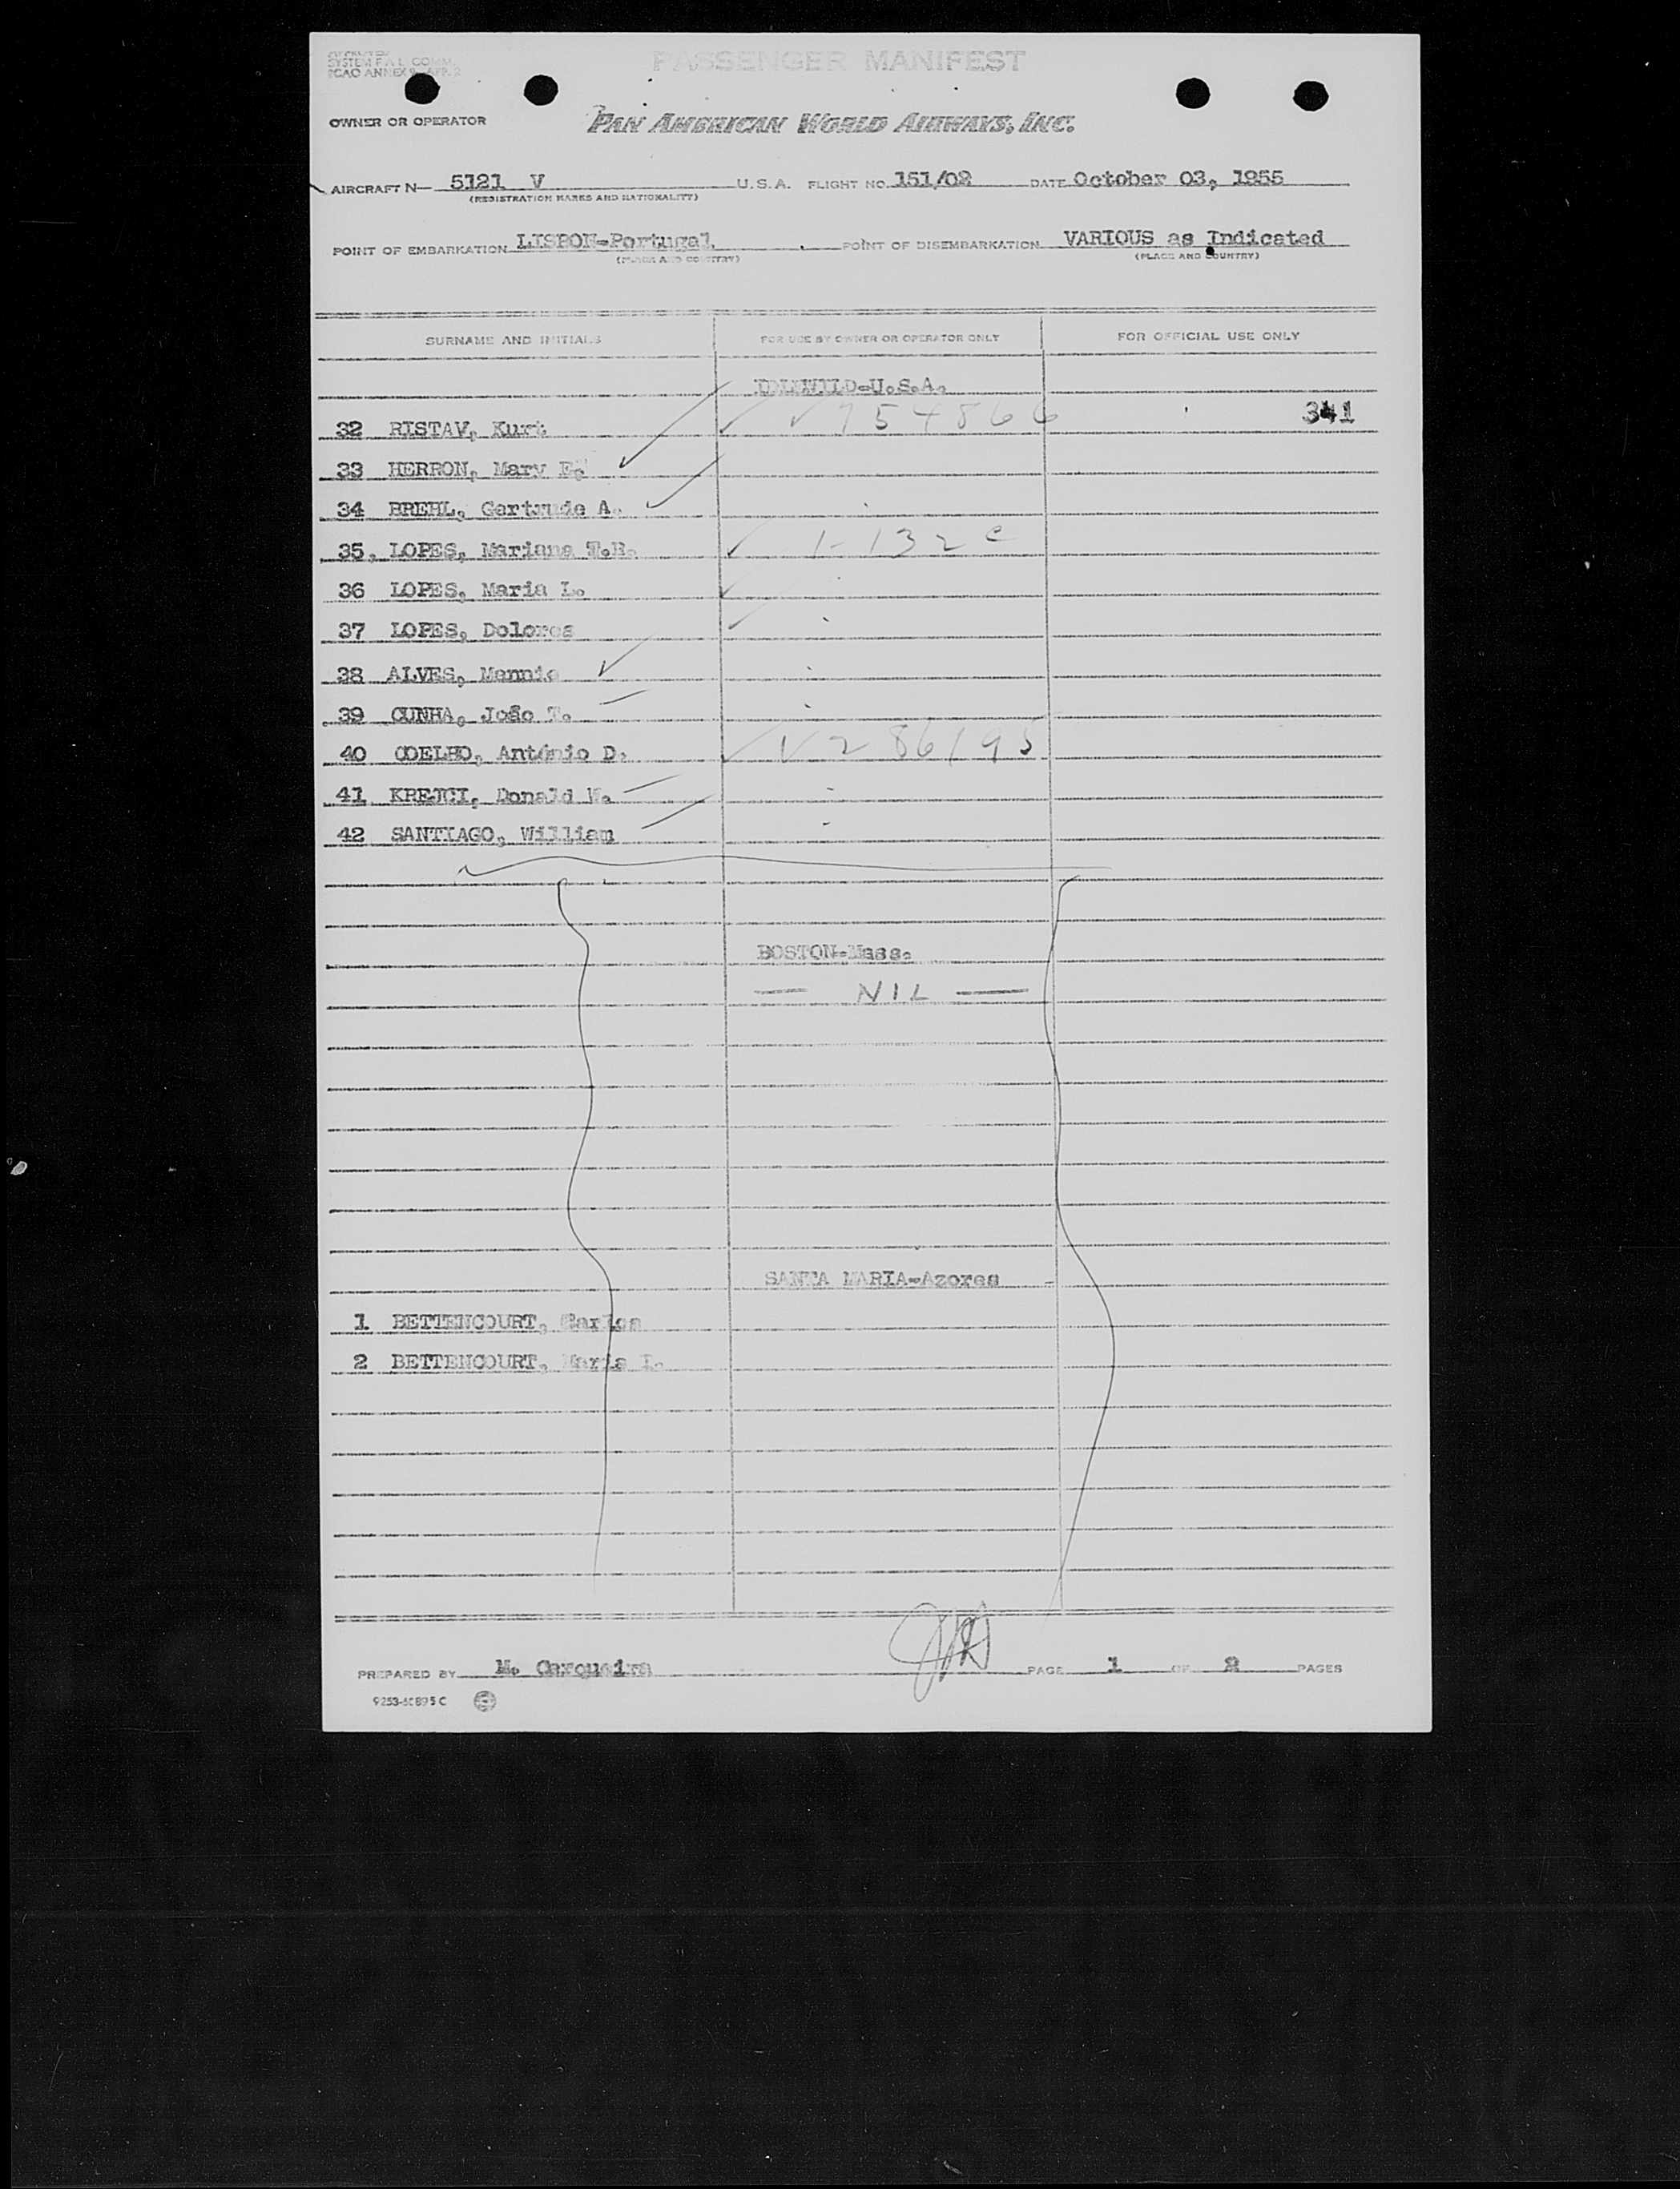 SYSTEM F.A.L. COMM.
ICAO ANNEX 9-APP. 2
PASSENGER MANIFEST
OWNER OR OPERATOR PAN AMERICAN WORLD AIRWAYS, INC.
AIRCRAFT N— 5121 V U.S.A. FLIGHT NO. 151/02 DATE October 03, 1955
(REGISTRATION MARKS AND NATIONALITY)
POINT OF EMBARKATION LISBON-Portugal. POINT OF DISEMBARKATION VARIOUS as Indicated
(PLACE AND COUNTRY) (PLACE AND COUNTRY)
SURNAME AND INITIALS FOR USE BY OWNER OR OPERATOR ONLY FOR OFFICIAL USE ONLY
IDLEWILD-U.S.A.
32 RISTAV, Kurt V 754866 341
33 HERRON, Mary E.
34 BREHL, Gertrude A.
35, LOPES, Mariana T.B. 1-132 c
36 LOPES, Maria L.
37 LOPES, Dolores
38 ALVES, Mennie
39 CUNHA, João T.
40 COELHO, António D. V 286195
41 KREJCI, Donald W.
42 SANTIAGO, William
BOSTON-Mass.
— NIL —
SANTA MARIA-Azores
1 BETTENCOURT, Carlos
2 BETTENCOURT, Maria I.
PREPARED BY M. Cerqueira PAGE 1 OF 2 PAGES